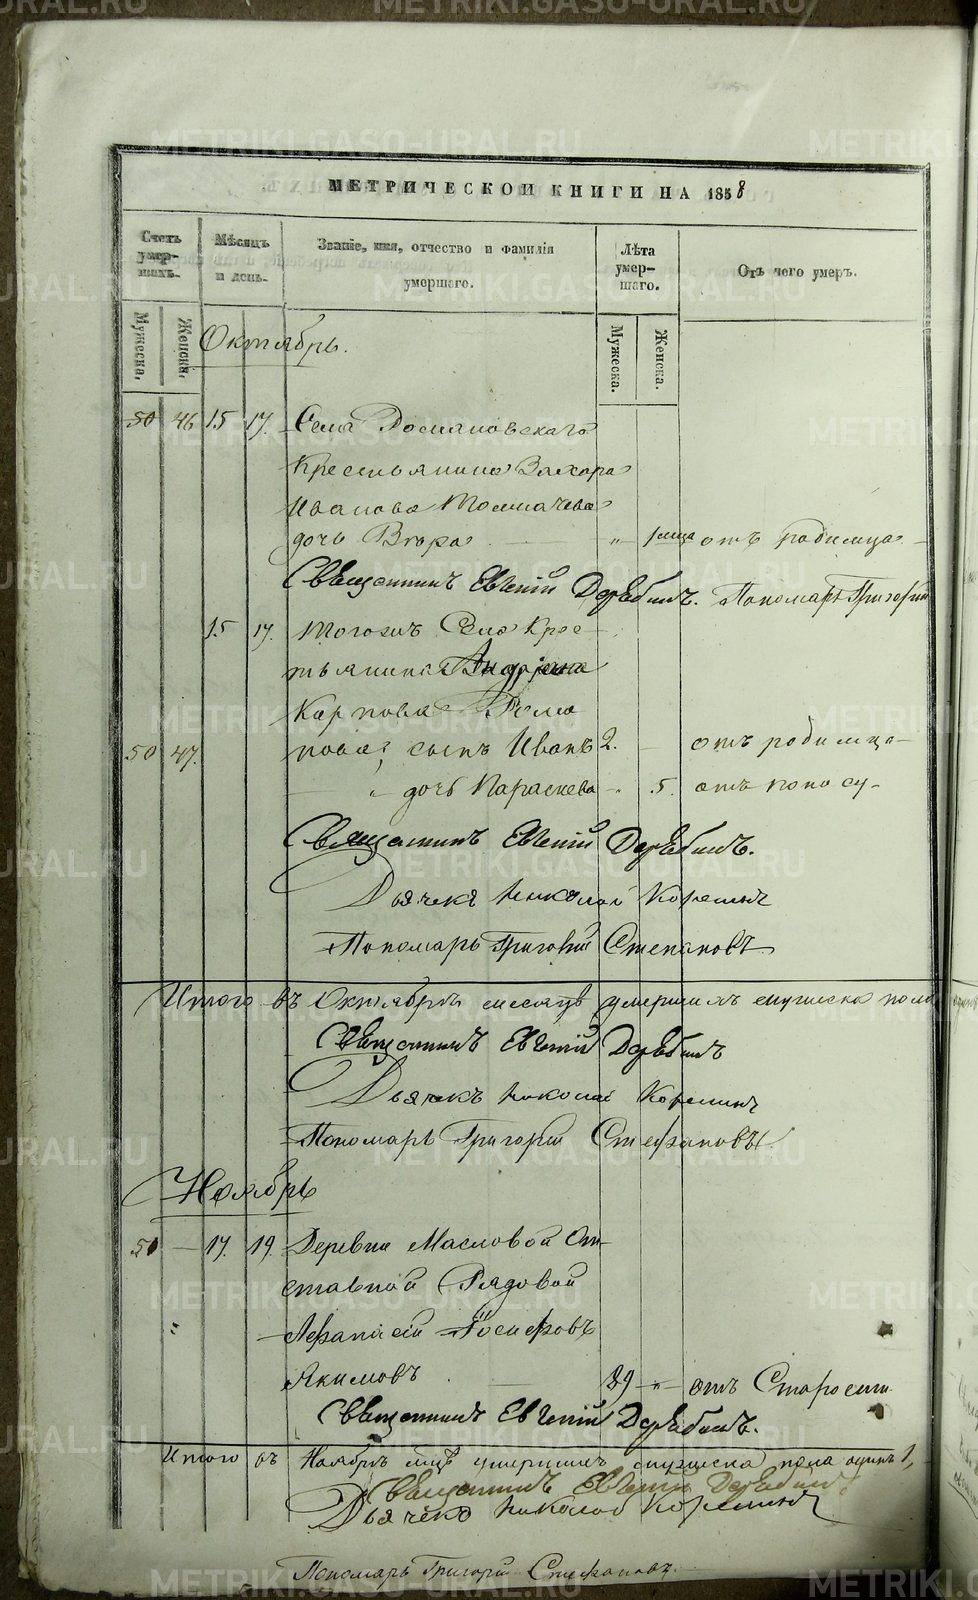 МЕТРИЧЕСКОЙ КНИГИ НА 1858
Счетъ умер- шихъ.
Мѣсяцъ и день.
Званіе, имя, отчество и фамилія умершаго.
Лѣта умер- шаго.
Отъ чего умеръ.
Мужеска.
Женска.
Мужеска.
Женска.
Октябрь.
50 46 15 17. Села
Крестьянина Захара
Иванова Толмачева
дочь Вѣра — „ 1 мца отъ родимца
Священникъ Евгеній Дерябинъ. Пономарь Григорій
15 17. Тогожъ Села Крес-
тьянина Андреяна
Карпова Рома
нова; сынъ Иванъ 2. — отъ родимца
50 47.
„ дочь Параскева „ 5. отъ поносу
Священникъ Евгеній Дерябинъ.
Дьячекъ Николай Корелинъ
Пономарь Григорій Стефановъ
Итого въ Октябрѣ месяцѣ умершихъ мужеска пола
Священникъ Евгеній Дерябинъ
Дьячекъ Николай Корелинъ
Пономарь Григорій Стефановъ
Ноябрь
51 — 17. 19. Деревни Масловой От-
ставной Рядовой
Афанасій Іосифовъ
Якимовъ 89 — „ — отъ Старости
Священникъ Евгеній Дерябинъ.
Итого въ Ноябрѣ мцѣ умершихъ мужеска пола одинъ 1,
Священникъ Евгеній Дерябинъ
Дьячекъ Николай Корелинъ
Пономарь Григорій Стефановъ.
METRIKI.GASO-URAL.RU